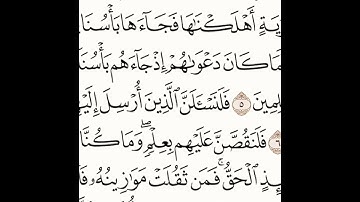 يَةٍ أَهْلَكْنَٰهَا فَجَآءَهَا بَأْسُنَا
مَا كَانَ دَعْوَىٰهُمْ إِذْ جَآءَهُم بَأْسُنَآ
لِمِينَ ۝٥ فَلَنَسْـَٔلَنَّ ٱلَّذِينَ أُرْسِلَ إِلَيْهِ
۝٦ فَلَنَقُصَّنَّ عَلَيْهِم بِعِلْمٍ ۖ وَمَا كُنَّا
ئِذٍ ٱلْحَقُّ ۚ فَمَن ثَقُلَتْ مَوَٰزِينُهُۥ فَأُ